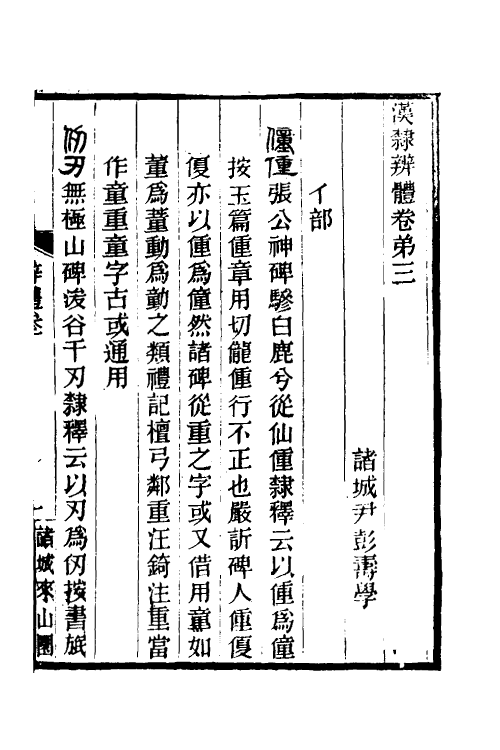 漢隸辨體卷弟三
諸城尹彭壽學
亻部
僮偅張公神碑驂白鹿兮從仙偅隸釋云以偅爲僮
按玉篇偅章用切儱偅行不正也嚴訢碑人偅傁
傁亦以偅爲僮然諸碑從重之字或又借用童如
董爲蕫動爲勭之類禮記檀弓鄰重汪錡注重當
作童重童字古或通用
仞刃無極山碑浚谷千刃隸釋云以刃爲仞按書旅
辨體卷
一
諸城來山園